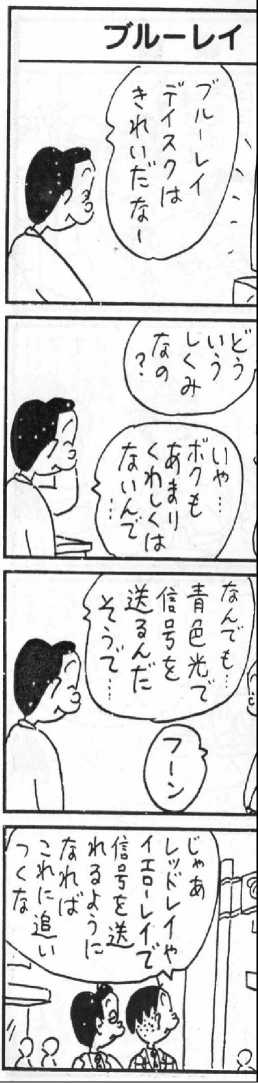 ブルーレイ
ブルーレイ
ディスクは
きれいだなー
どう
いう
しくみ
なの
?
いや…
ボクも
あまり
くわしくは
ないんで
……
なんでも…
青色光で
信号を
送るんだ
そうで…
フーン
じゃあ
レッドレイや
イエローレイで
信号を送
れるように
なれば
これに追い
つくな